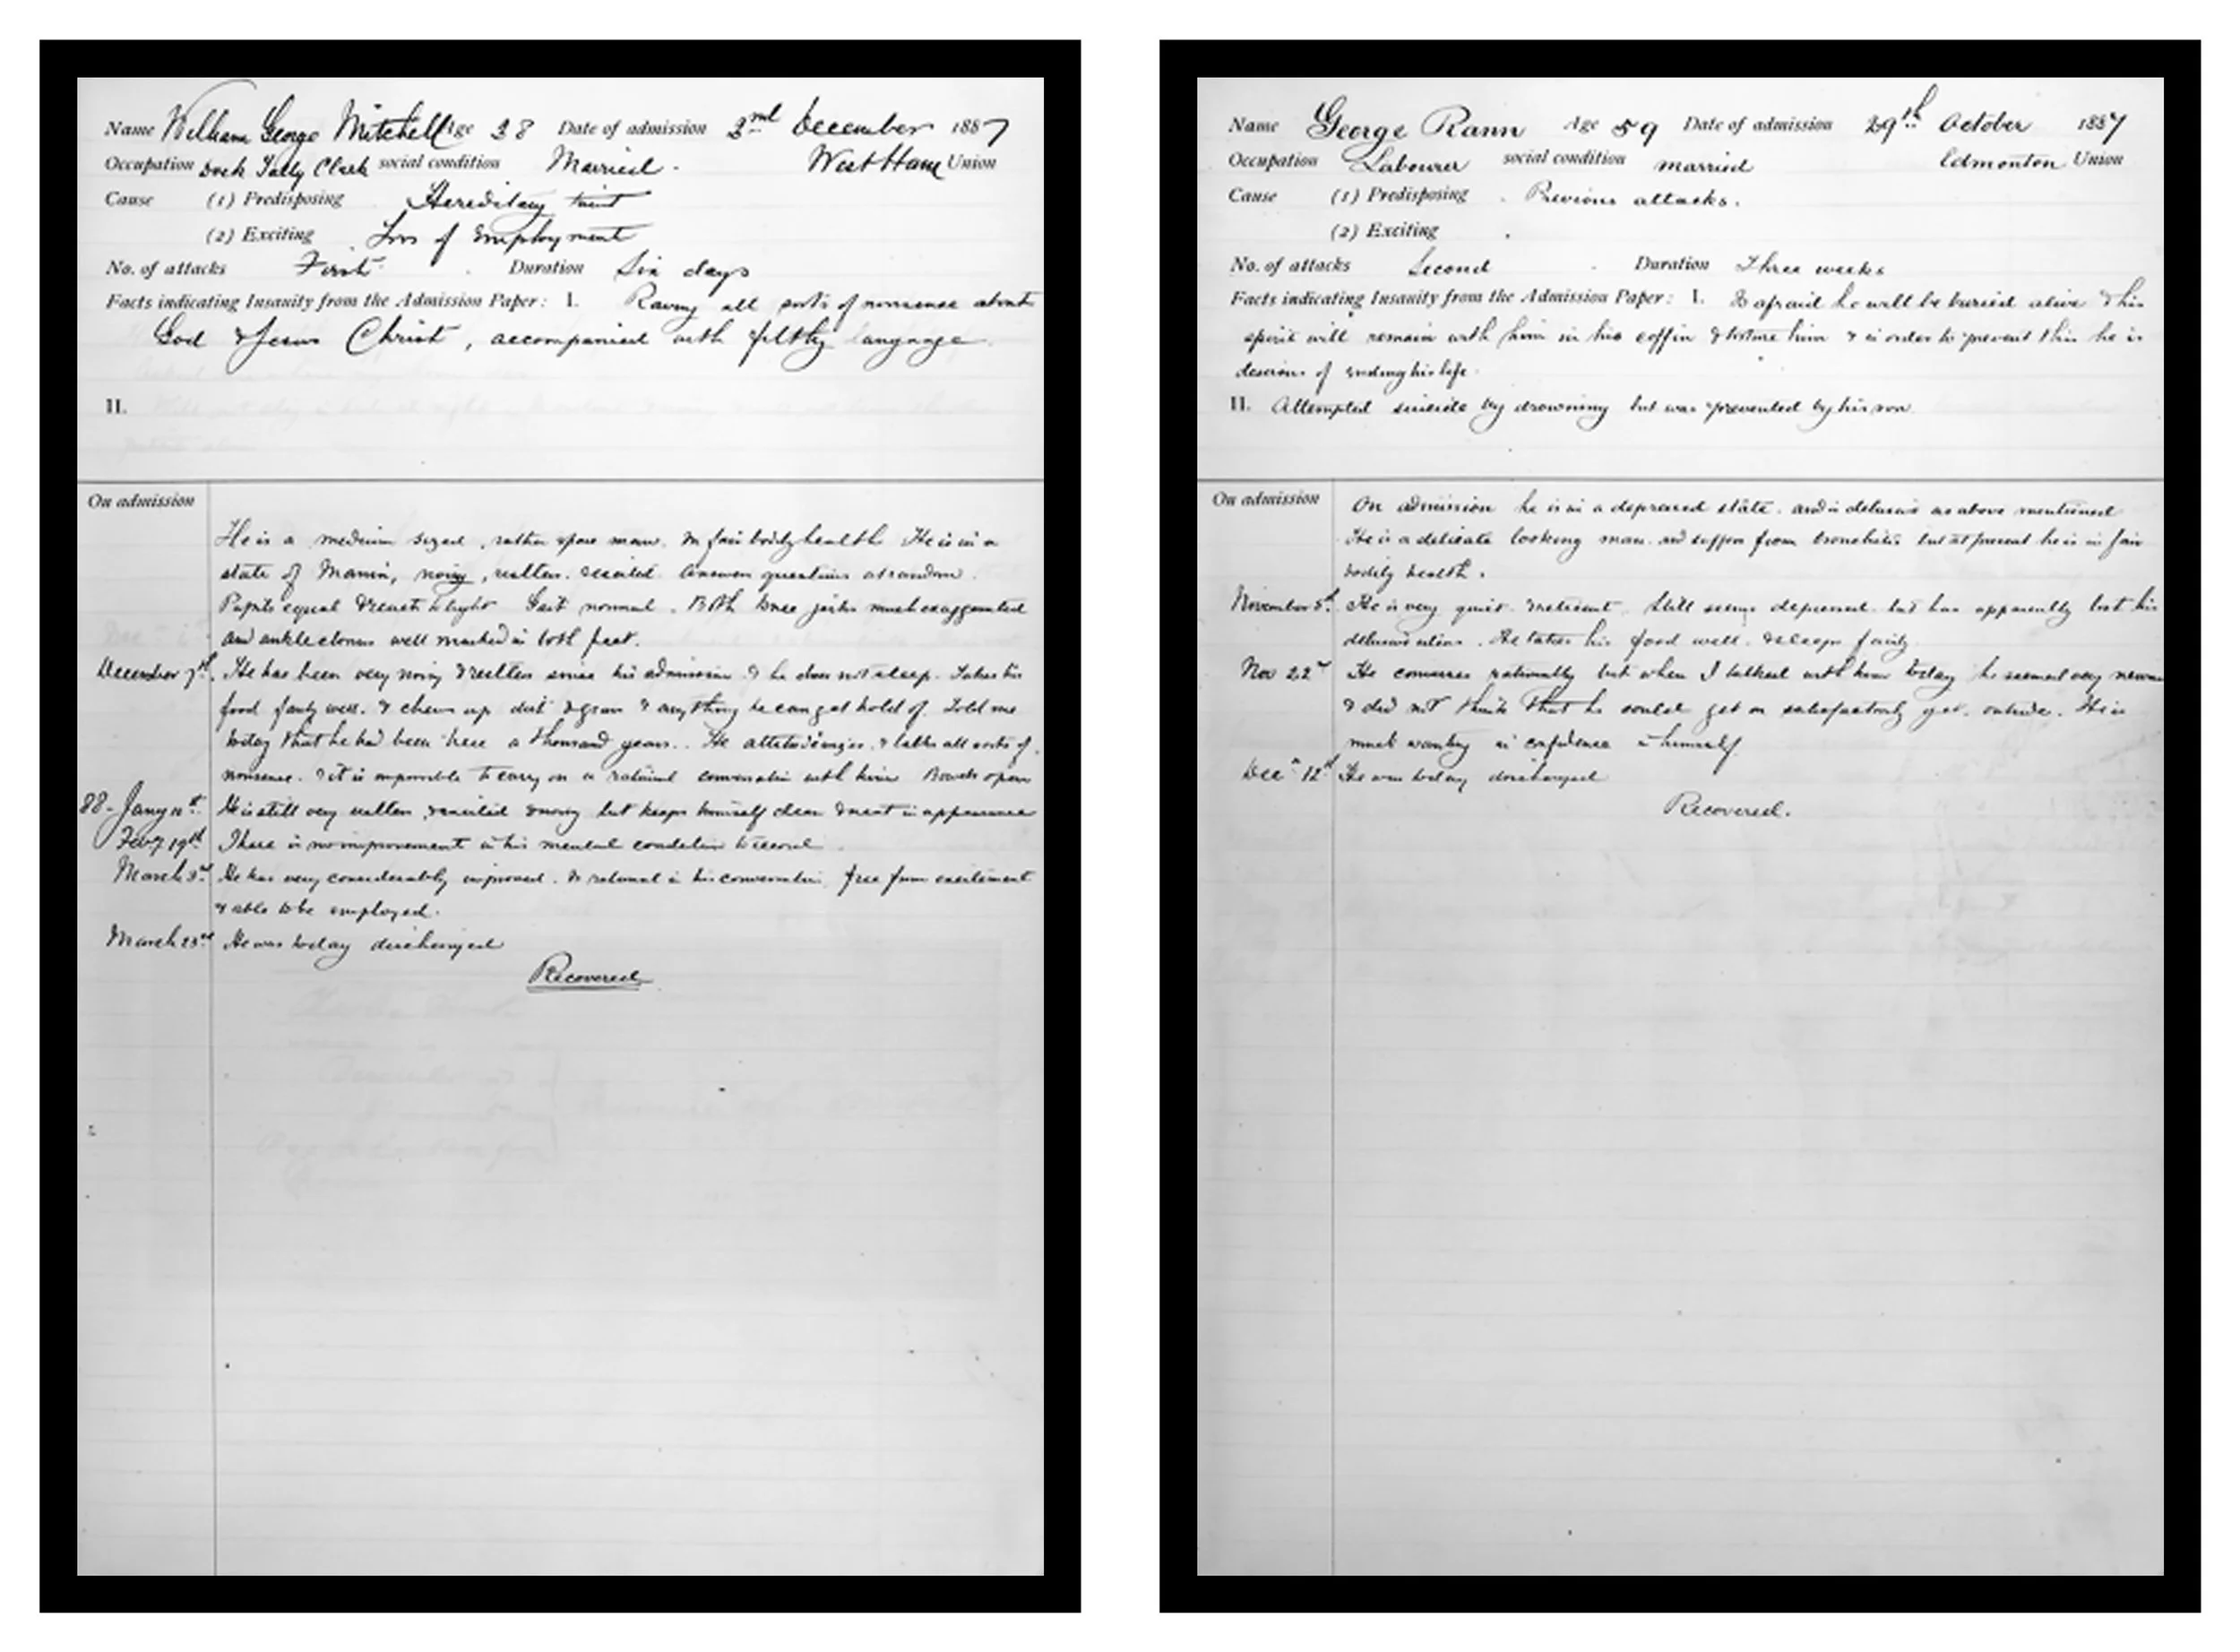 Name William George Mitchell Age 38 Date of admission 2nd December 1887
Occupation Dock Tally Clerk social condition Married. West Ham Union
Cause (1) Predisposing Hereditary taint
(2) Exciting Loss of Employment
No. of attacks First Duration Six days
Facts indicating Insanity from the Admission Paper: I. Raving all sorts of nonsense about
God & Jesus Christ, accompanied with filthy language.
II.
On admission
He is a medium sized, rather spare man. In fair bodily health He is in a
state of Mania, noisy, restless, excited. Answers questions at random.
Pupils equal & react to light Gait normal. Both knee jerks much exaggerated
and ankle clonus well marked in both feet.
December 7th. He has been very noisy & restless since his admission & he does not sleep. Takes his
food fairly well. & chews up dirt & grass & anything he can get hold of. Told me
today that he had been here a thousand years. He attitudinizes, & talks all sorts of
nonsense. & it is impossible to carry on a rational conversation with him Bowels open
88- Jany 11th. He is still very restless, excited & noisy but keeps himself clean & neat in appearance
Feby 19th There is no improvement in his mental condition to record.
March 3rd He has very considerably improved. Is rational in his conversation, free from excitement
& able to be employed.
March 23rd He was today discharged
Recovered
Name George Rann Age 59 Date of admission 29th October 1887
Occupation Labourer social condition married Edmonton Union
Cause (1) Predisposing Previous attacks.
(2) Exciting
No. of attacks Second Duration Three weeks
Facts indicating Insanity from the Admission Paper: I. Is afraid he will be buried alive & his
spirit will remain with him in his coffin & torture him & in order to prevent this he is
desirous of ending his life.
II. Attempted suicide by drowning but was prevented by his son
On admission On admission he is in a depressed state. and is delusive as above mentioned
He is a delicate looking man and suffers from bronchitis but at present he is in fair
bodily health.
November 5th. He is very quiet & reticent. Still seems depressed but has apparently lost his
delusions. He takes his food well. & sleeps fairly
Nov 22nd He converses rationally but when I talked with him today he seemed very nervous
& did not think that he could get on satisfactorily yet, outside. He is
much wanting in confidence in himself
Decr 12th He was today discharged
Recovered.